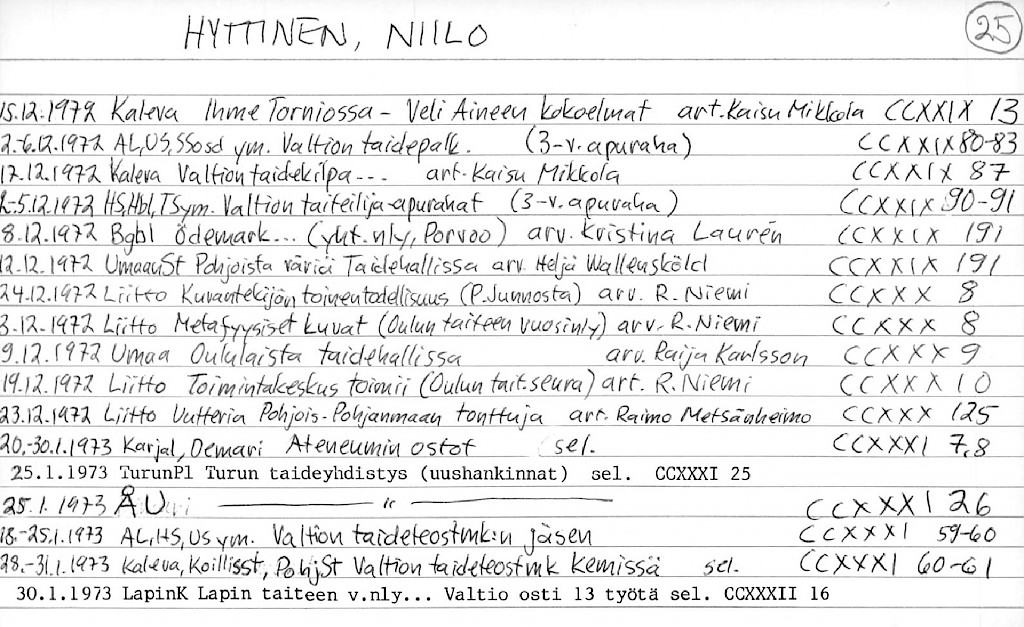 HYTTINEN, NIILO 25
15.12.1972 Kaleva Ihme Torniossa - Veli Aineen kokoelmat art. Kaisu Mikkola CCXXIX 13
2.-6.12.1972 AL, US, SSosd ym. Valtion taidepalk. (3-v. apuraha) CCXXIX 80-83
17.12.1972 Kaleva Valtion taidekilpa--- art. Kaisu Mikkola CCXXIX 87
2.-5.12.1972 HS, Hbl, TS ym. Valtion taiteilija-apurahat (3-v. apuraha) CCXXIX 90-91
8.12.1972 Bgbl Ödemark... (yht. nly, Porvoo) arv. Kristina Laurén CCXXIX 191
12.12.1972 UmaanSt Pohjoista väriä Taidehallissa arv. Heljä Wallensköld CCXXIX 191
24.12.1972 Liitto Kuvantekijän toinen todellisuus (P. Junnosta) arv. R. Niemi CCXXX 8
3.12.1972 Liitto Metafyysiset kuvat (Oulun taiteen vuosinly) arv. R. Niemi CCXXX 8
9.12.1972 Umaa Oululaista taidehallissa arv. Raija Karlsson CCXXX 9
19.12.1972 Liitto Toimintakeskus toimii (Oulun tait.seura) art. R. Niemi CCXXX 10
23.12.1972 Liitto Uutteria Pohjois-Pohjanmaan tonttuja art. Raimo Metsänheimo CCXXX 125
20.-30.1.1973 Karjal, Demari Ateneumin ostot sel. CCXXXI 7,8
25.1.1973 TurunPl Turun taideyhdistys (uushankinnat) sel. CCXXXI 25
25.1.1973 ÅU ——— " ——— CCXXXI 26
18.-25.1.1973 AL, HS, US ym. Valtion taideteostmk:n jäsen CCXXXI 59-60
28.-31.1.1973 Kaleva, Koillisst, PohjSt Valtion taideteostmk Kemissä sel. CCXXXI 60-61
30.1.1973 LapinK Lapin taiteen v.nly... Valtio osti 13 työtä sel. CCXXXII 16